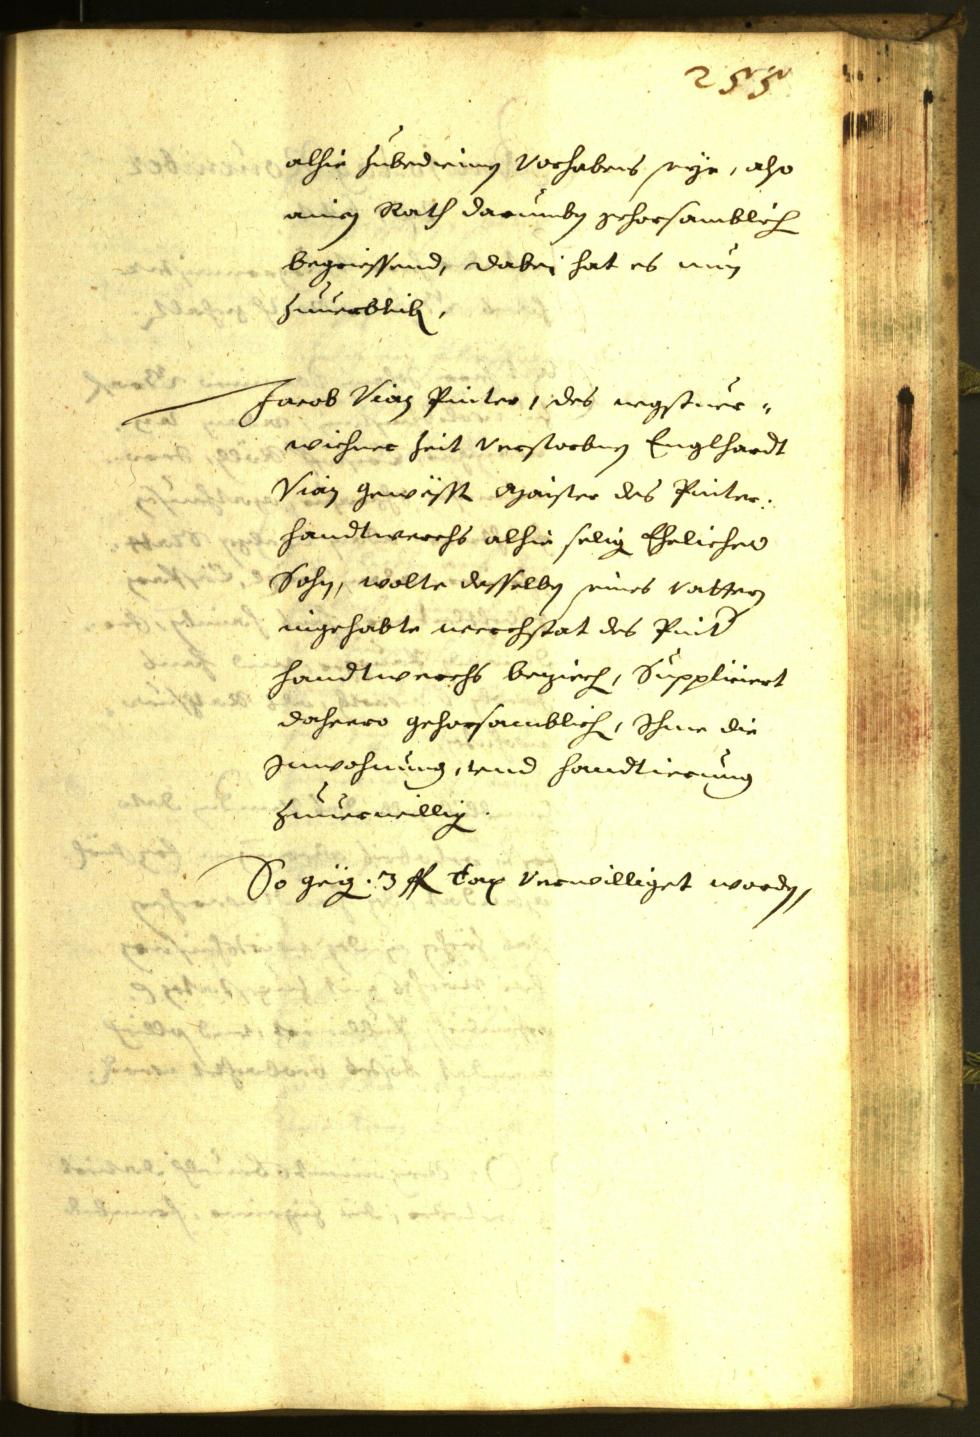 255
alhie zubedienen Vorhabens seye, also
ainen Rath darumben gehorsamblich
begriessend, dabei hat es nun
zuuerbleiben,
Jacob Vian Pinter, des negstuer¬
wichner Zeit verstorbnen Englhardt
Vian gewesst Maister des Pinter¬
handtwerchs alhie selig Ehelicher
Sohn, wolte desselben seines vattern
ingehabte werchstat des Pinter
handtwerchs beziech, Suppliciert
dahero gehorsamblich, Ihme die
Inwohnung, vnd handtierung
zuuerwillig.
So geg. 3 fl Tax Verwilliget worden,